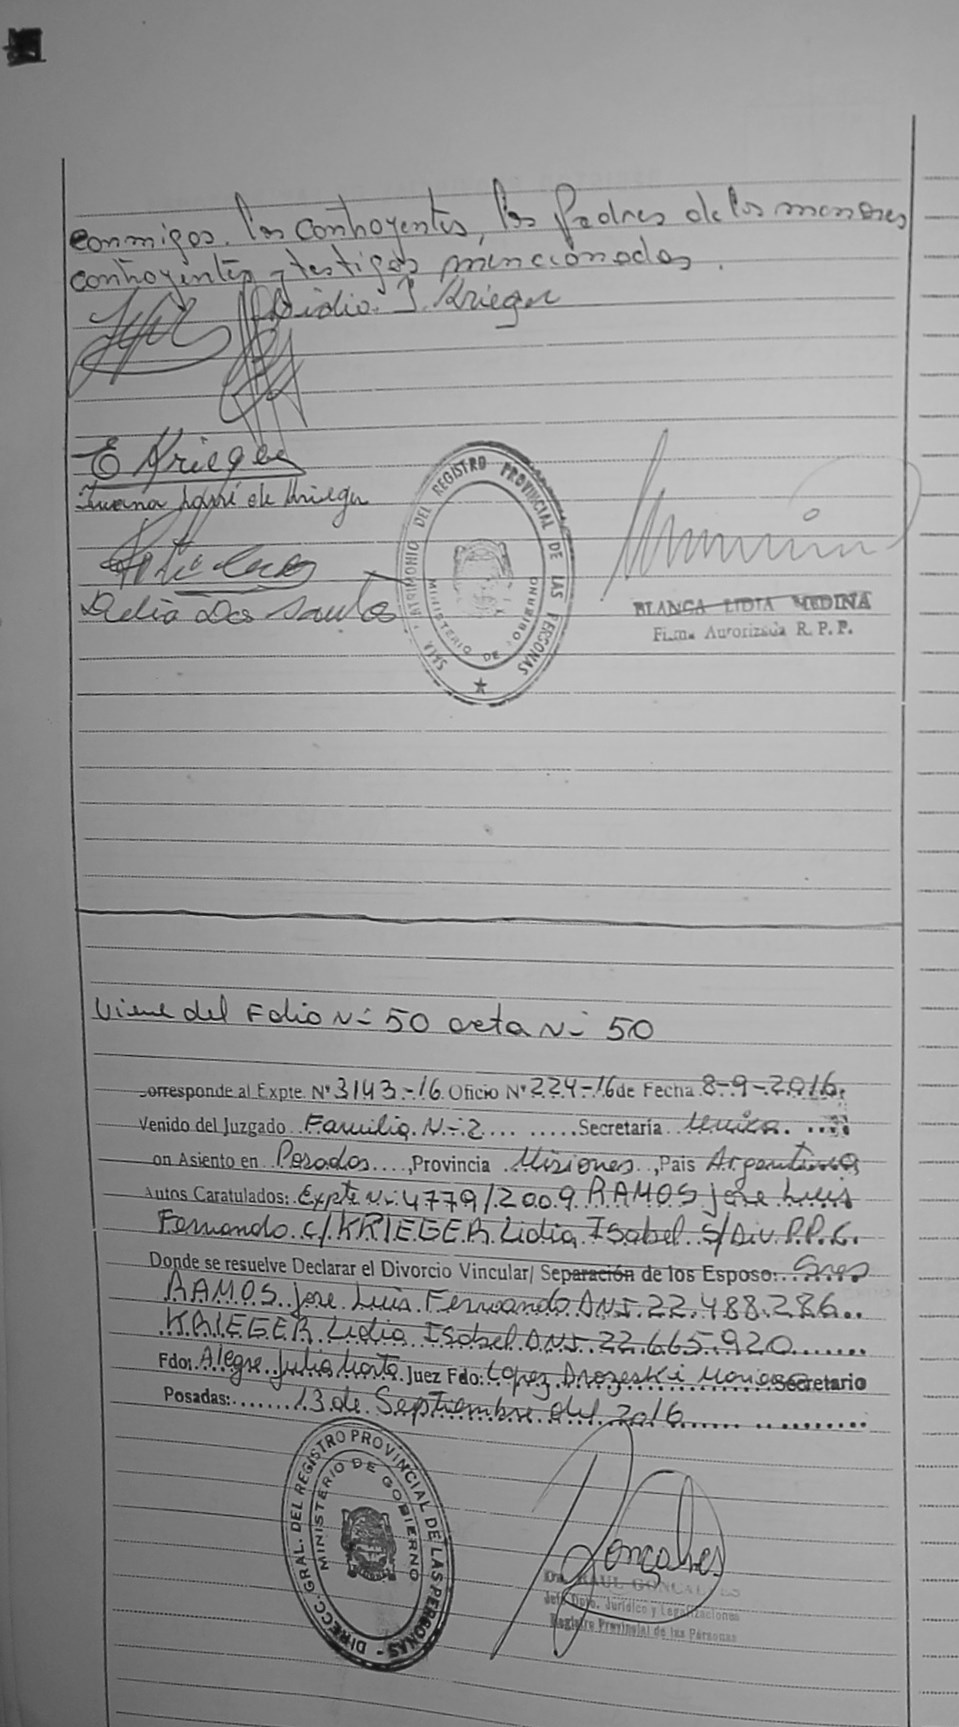 conmigo. los contrayentes, los Padres de los menores
contrayentes y testigos mencionados.
Lidia I. Krieger
E Krieger
Juana de Krieger
Delia Dos Santos
MATRIMONIO DEL REGISTRO PROVINCIAL DE LAS PERSONAS
MINISTERIO DE GOBIERNO
BLANCA LIDIA MEDINA
Firma Autorizada R. P. P.
Viene del Folio Nº 50 acta Nº 50
orresponde al Expte. Nº 3143-16 Oficio Nº 224-16 de Fecha 8-9-2016.
Venido del Juzgado Familia Nº 2 Secretaría Unica.
on Asiento en Posadas, Provincia Misiones, Pais Argentina
Autos Caratulados: Expte Nº 4779/2009 RAMOS Jose Luis
Fernando c/ KRIEGER Lidia Isabel S/Div. P.P.C.
Donde se resuelve Declarar el Divorcio Vincular/ Separación de los Esposo: Sres
RAMOS Jose Luis Fernando DNI. 22.488.286
KRIEGER Lidia Isabel DNI. 22.665.920
Fdo: Alegre Julia Marta Juez Fdo: Lopez Drozeski Secretario
Posadas: 13 de Septiembre del 2016
DIRECC. GRAL. DEL REGISTRO PROVINCIAL DE LAS PERSONAS
MINISTERIO DE GOBIERNO
Goncalves
Dr. RAUL GONCALVES
Jefe Dpto. Jurídico y Legalizaciones
Registro Provincial de las Personas